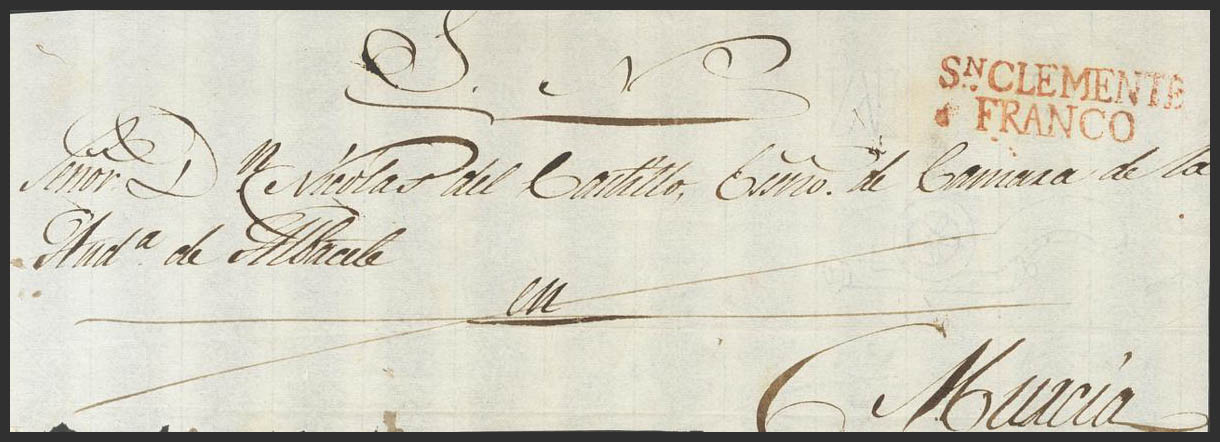 S. N.
Sn. CLEMENTE
FRANCO
Señor Dn. Nicolas del Castillo, Essno. de Camara de la
Auda. de Albacete
en
Murcia